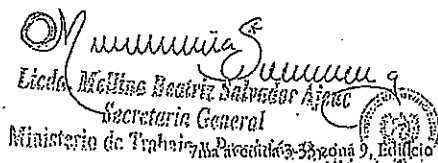 Licda. Mellina Beatriz Salvador Ajcuc
Secretaria General
Ministerio de Trabajo 7ma Avenida 3-33 zona 9, Edificio